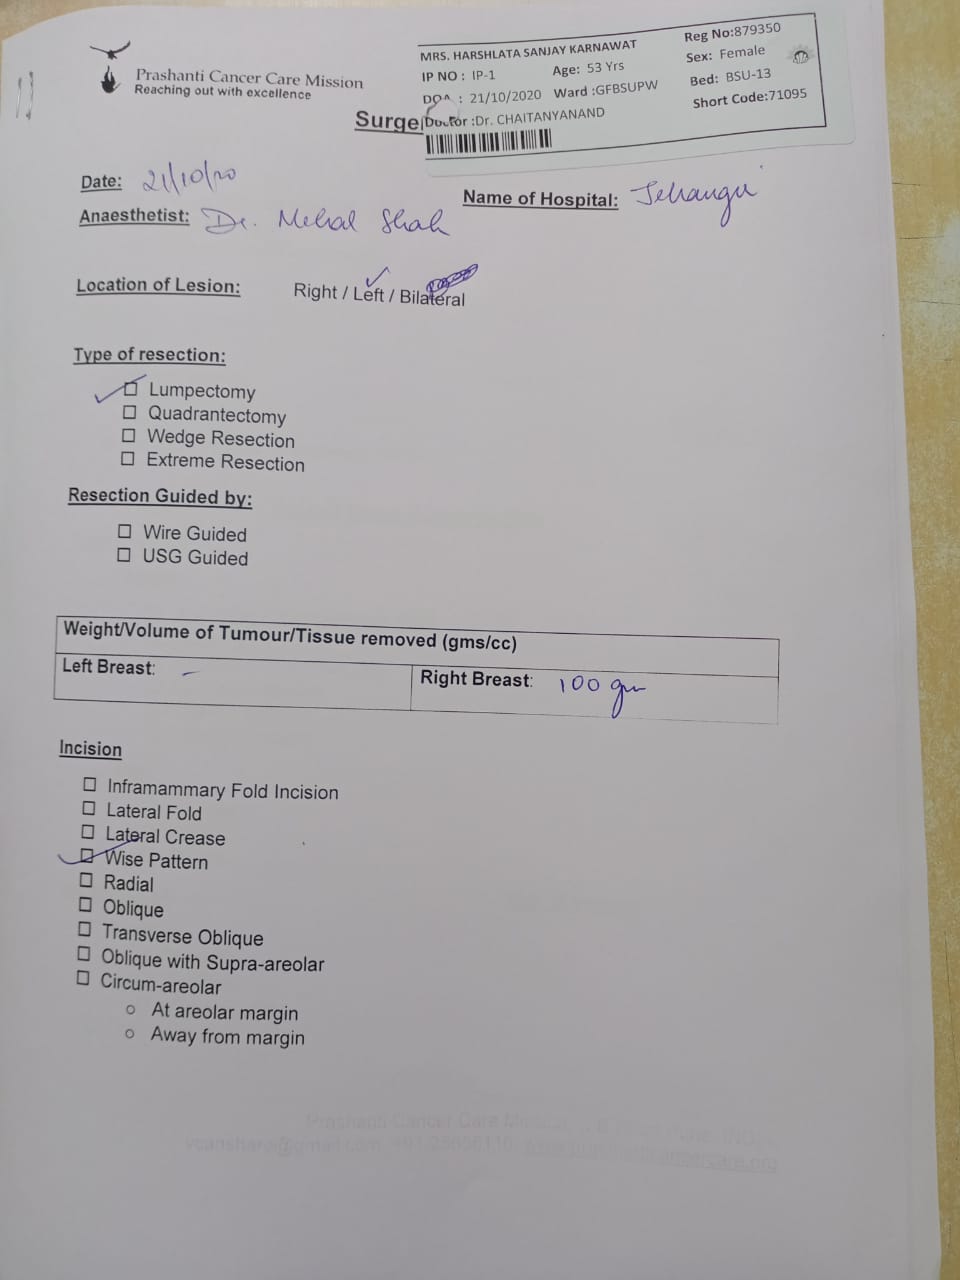 Prashanti Cancer Care Mission
Reaching out with excellence
MRS. HARSHLATA SANJAY KARNAWAT
Reg No:879350
IP NO : IP-1
Age: 53 Yrs
Sex: Female
DOA : 21/10/2020
Ward :GFBSUPW
Bed: BSU-13
Doctor :Dr. CHAITANYANAND
Short Code:71095
Surge
Date: 21/10/20
Name of Hospital: Jehangir
Anaesthetist: Dr. Mehal Shah
Location of Lesion: Right / Left / Bilateral
Type of resection:
☐ Lumpectomy
☐ Quadrantectomy
☐ Wedge Resection
☐ Extreme Resection
Resection Guided by:
☐ Wire Guided
☐ USG Guided
Weight/Volume of Tumour/Tissue removed (gms/cc)
Left Breast: –
Right Breast: 100 gm
Incision
☐ Inframammary Fold Incision
☐ Lateral Fold
☐ Lateral Crease
☐ Wise Pattern
☐ Radial
☐ Oblique
☐ Transverse Oblique
☐ Oblique with Supra-areolar
☐ Circum-areolar
○ At areolar margin
○ Away from margin